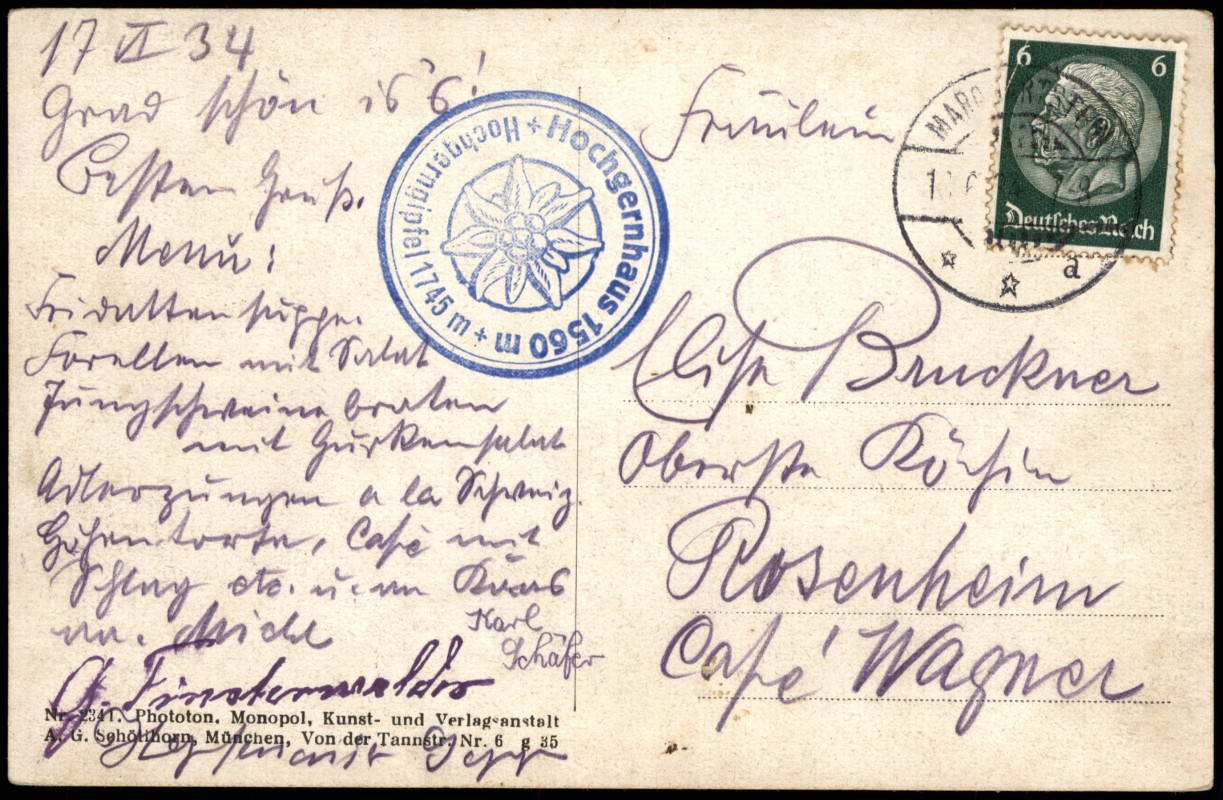 17 VI 34
Grad schön is's!
Besten Gruß.
Menu:
Fridattensuppe.
Forellen mit Salat
Jungschweinebraten
mit Gurkensalat
Adlerzungen a la Schweiz.
Höhentorte, Café mit
Schlag etc. u. an
Michl
Karl
Schäfer
G. Finsterwalder
Sepp
Nr. 2341. Phototon. Monopol, Kunst- und Verlagsanstalt
A. G. Schöllhorn, München, Von der Tannstr. Nr. 6 g 35
Hochgernhaus 1560 m + Hochgerngipfel 1745 m +
Fräulein
Elise Bruckner
Oberste Köchin
Rosenheim
Café Wagner
6 6
Deutsches Reich
a